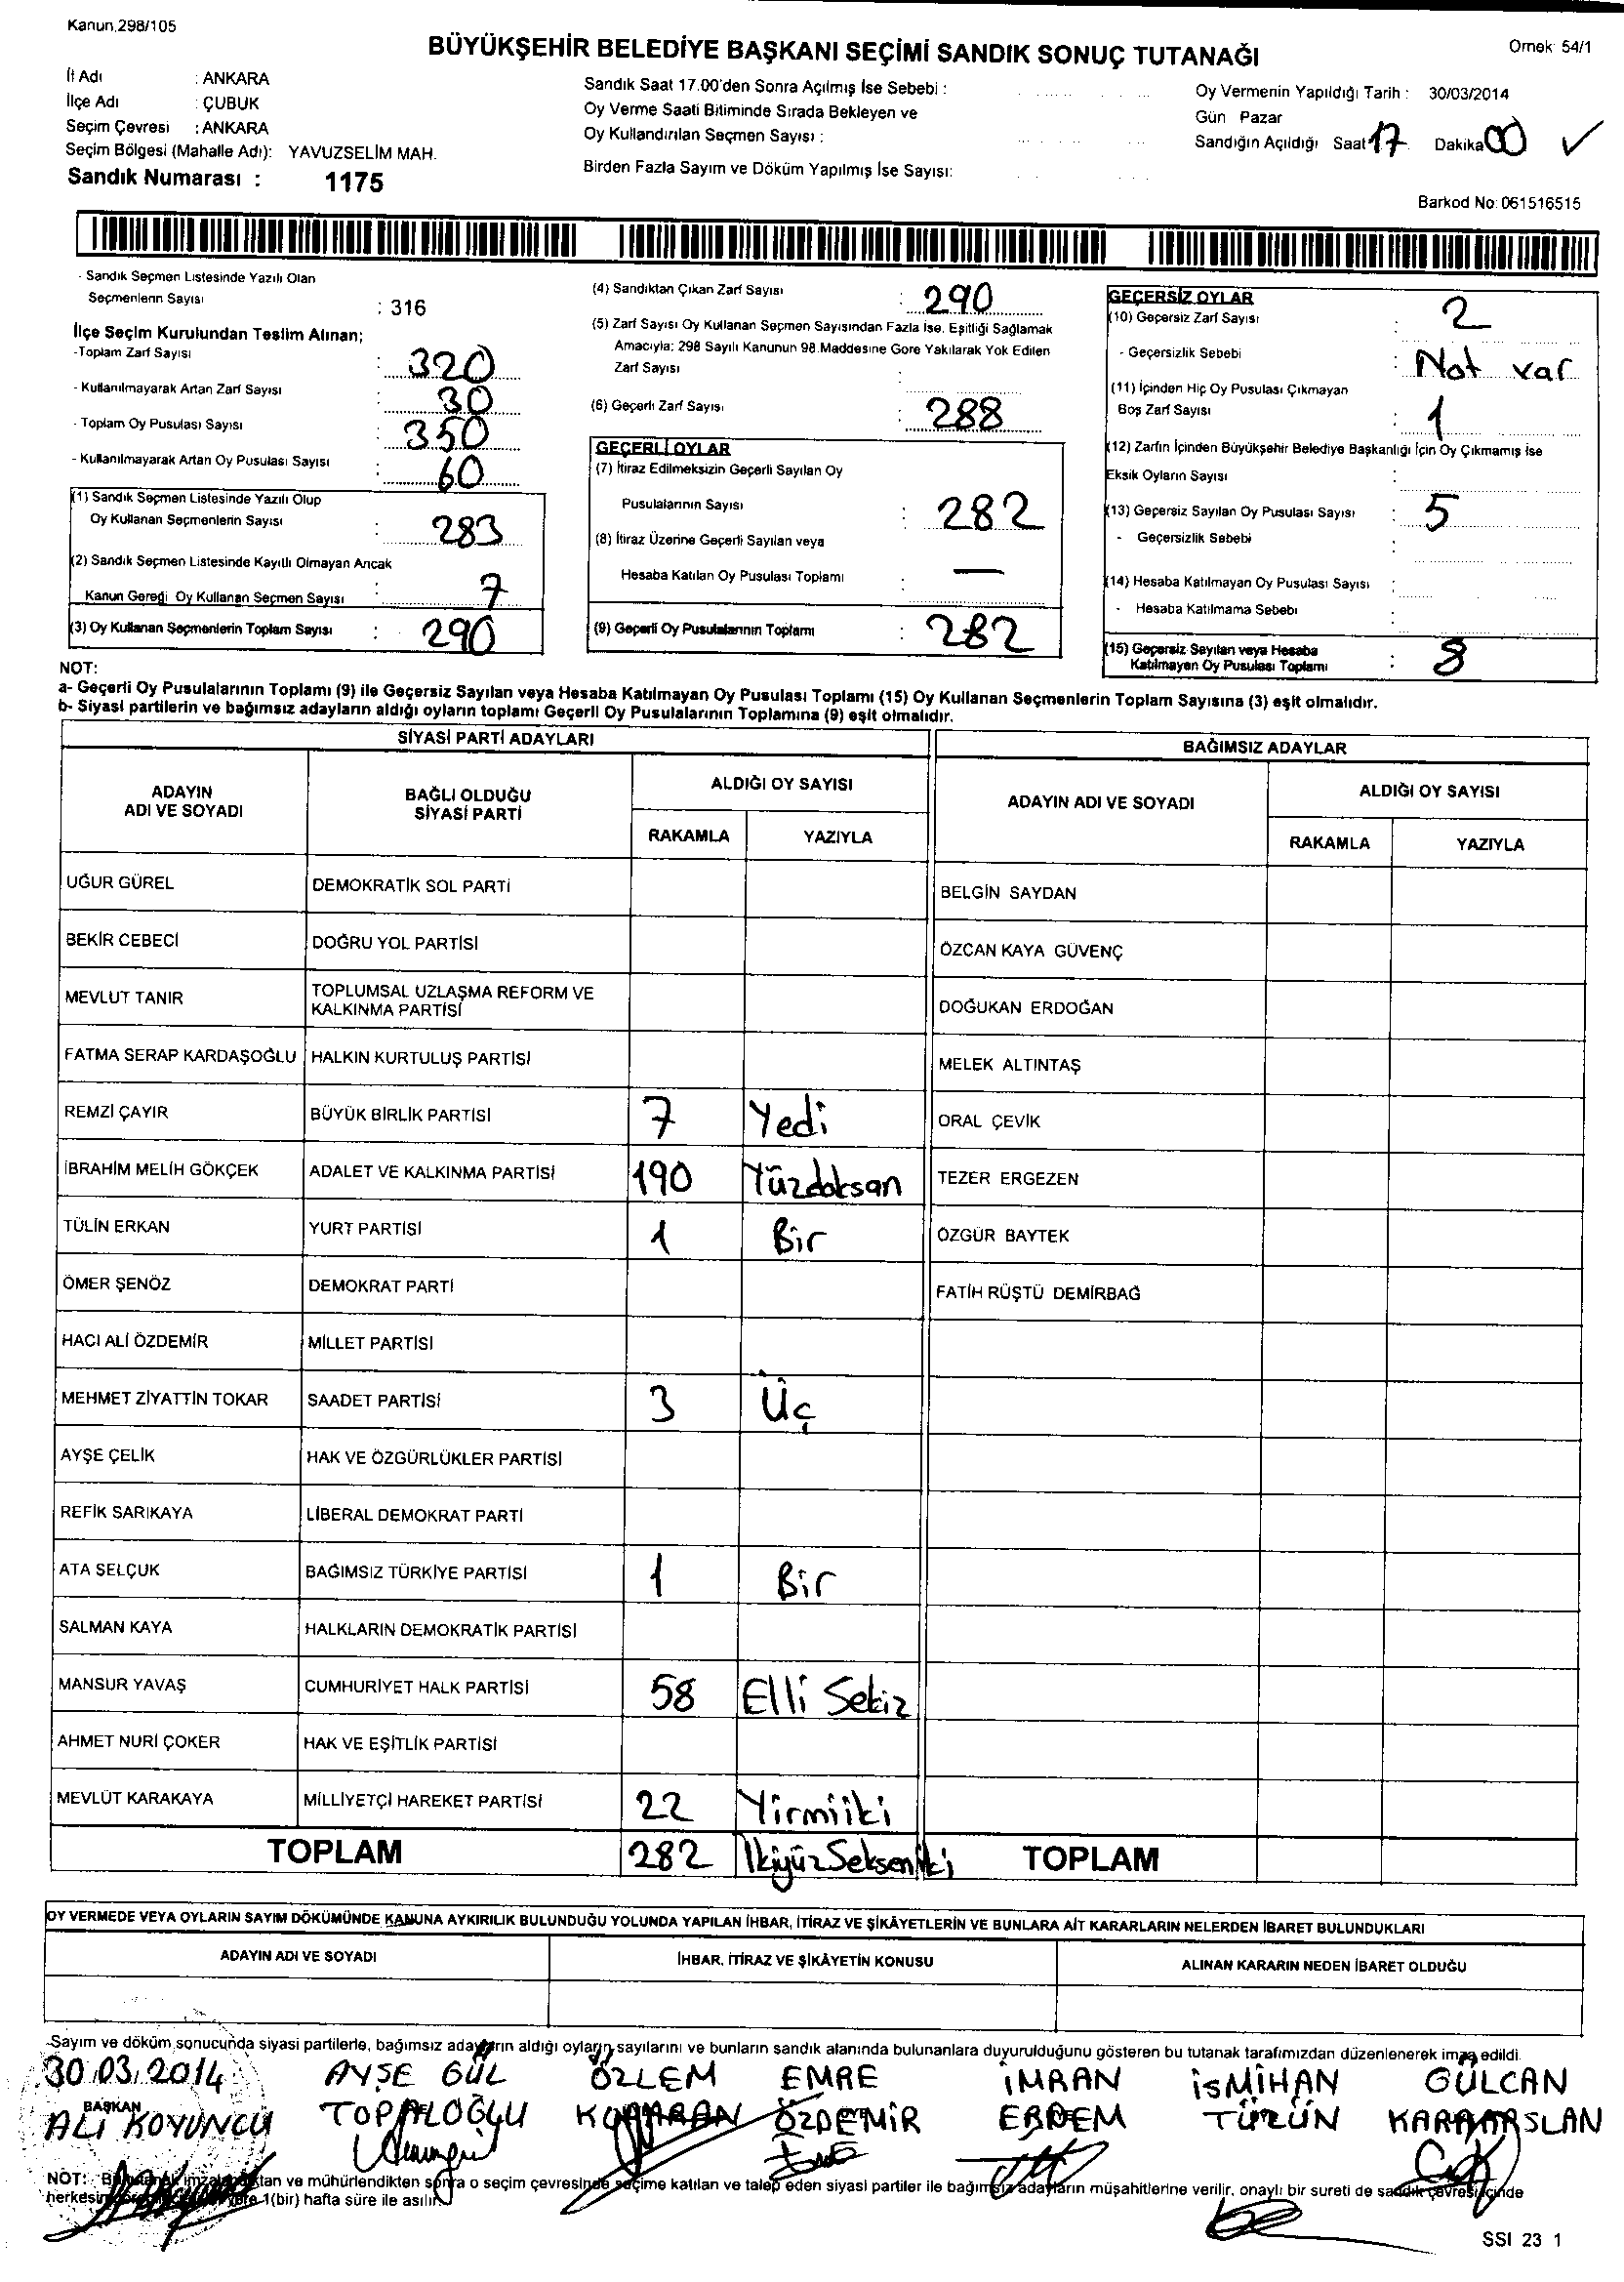 Kanun.298/105
BÜYÜKŞEHİR BELEDİYE BAŞKANI SEÇİMİ SANDIK SONUÇ TUTANAĞI
Ornek 54/1
İl Adı : ANKARA
İlçe Adı : ÇUBUK
Seçim Çevresi : ANKARA
Seçim Bölgesi (Mahalle Adı): YAVUZSELİM MAH.
Sandık Numarası : 1175
Sandık Saat 17.00'den Sonra Açılmış İse Sebebi :
Oy Verme Saati Bitiminde Sırada Bekleyen ve
Oy Kullandırılan Seçmen Sayısı :
Birden Fazla Sayım ve Döküm Yapılmış İse Sayısı:
Oy Vermenin Yapıldığı Tarih : 30/03/2014
Gün Pazar
Sandığın Açıldığı Saat 17 Dakika 00 ✓
Barkod No: 061516515
- Sandık Seçmen Listesinde Yazılı Olan
Seçmenlerin Sayısı : 316
İlçe Seçim Kurulundan Teslim Alınan;
-Toplam Zarf Sayısı : 320
- Kullanılmayarak Artan Zarf Sayısı : 30
- Toplam Oy Pusulası Sayısı : 350
- Kullanılmayarak Artan Oy Pusulası Sayısı : 60
(1) Sandık Seçmen Listesinde Yazılı Olup
Oy Kullanan Seçmenlerin Sayısı : 283
(2) Sandık Seçmen Listesinde Kayıtlı Olmayan Ancak
Kanun Gereği Oy Kullanan Seçmen Sayısı : 7
(3) Oy Kullanan Seçmenlerin Toplam Sayısı : 290
(4) Sandıktan Çıkan Zarf Sayısı : 290
(5) Zarf Sayısı Oy Kullanan Seçmen Sayısından Fazla İse, Eşitliği Sağlamak
Amacıyla: 298 Sayılı Kanunun 98.Maddesine Gore Yakılarak Yok Edilen
Zarf Sayısı :
(6) Geçerli Zarf Sayısı : 288
GEÇERLİ OYLAR
(7) İtiraz Edilmeksizin Geçerli Sayılan Oy
Pusulalarının Sayısı : 282
(8) İtiraz Üzerine Geçerli Sayılan veya
Hesaba Katılan Oy Pusulası Toplamı : —
(9) Geçerli Oy Pusulalarının Toplamı : 282
GEÇERSİZ OYLAR
(10) Geçersiz Zarf Sayısı : 2
- Geçersizlik Sebebi : Not var
(11) İçinden Hiç Oy Pusulası Çıkmayan
Boş Zarf Sayısı : 1
(12) Zarfın İçinden Büyükşehir Belediye Başkanlığı İçin Oy Çıkmamış İse
Eksik Oyların Sayısı :
(13) Geçersiz Sayılan Oy Pusulası Sayısı : 5
- Geçersizlik Sebebi :
(14) Hesaba Katılmayan Oy Pusulası Sayısı :
- Hesaba Katılmama Sebebi :
(15) Geçersiz Sayılan veya Hesaba
Katılmayan Oy Pusulası Toplamı : 8
NOT:
a- Geçerli Oy Pusulalarının Toplamı (9) ile Geçersiz Sayılan veya Hesaba Katılmayan Oy Pusulası Toplamı (15) Oy Kullanan Seçmenlerin Toplam Sayısına (3) eşit olmalıdır.
b- Siyasi partilerin ve bağımsız adayların aldığı oyların toplamı Geçerli Oy Pusulalarının Toplamına (9) eşit olmalıdır.
SİYASİ PARTİ ADAYLARI
BAĞIMSIZ ADAYLAR
ADAYIN ADI VE SOYADI BAĞLI OLDUĞU SİYASİ PARTİ ALDIĞI OY SAYISI ADAYIN ADI VE SOYADI ALDIĞI OY SAYISI
RAKAMLA YAZIYLA RAKAMLA YAZIYLA
UĞUR GÜREL DEMOKRATİK SOL PARTİ BELGİN SAYDAN
BEKİR CEBECİ DOĞRU YOL PARTİSİ ÖZCAN KAYA GÜVENÇ
MEVLUT TANIR TOPLUMSAL UZLAŞMA REFORM VE KALKINMA PARTİSİ DOĞUKAN ERDOĞAN
FATMA SERAP KARDAŞOĞLU HALKIN KURTULUŞ PARTİSİ MELEK ALTINTAŞ
REMZİ ÇAYIR BÜYÜK BİRLİK PARTİSİ 7 Yedi ORAL ÇEVİK
İBRAHİM MELİH GÖKÇEK ADALET VE KALKINMA PARTİSİ 190 Yüzdoksan TEZER ERGEZEN
TÜLİN ERKAN YURT PARTİSİ 1 Bir ÖZGÜR BAYTEK
ÖMER ŞENÖZ DEMOKRAT PARTİ FATİH RÜŞTÜ DEMİRBAĞ
HACI ALİ ÖZDEMİR MİLLET PARTİSİ
MEHMET ZİYATTİN TOKAR SAADET PARTİSİ 3 Üç
AYŞE ÇELİK HAK VE ÖZGÜRLÜKLER PARTİSİ
REFİK SARIKAYA LİBERAL DEMOKRAT PARTİ
ATA SELÇUK BAĞIMSIZ TÜRKİYE PARTİSİ 1 Bir
SALMAN KAYA HALKLARIN DEMOKRATİK PARTİSİ
MANSUR YAVAŞ CUMHURİYET HALK PARTİSİ 58 Elli Sekiz
AHMET NURİ ÇOKER HAK VE EŞİTLİK PARTİSİ
MEVLÜT KARAKAYA MİLLİYETÇİ HAREKET PARTİSİ 22 Yirmiiki
TOPLAM 282 İkiyüzSekseniki TOPLAM
OY VERMEDE VEYA OYLARIN SAYIM DÖKÜMÜNDE KANUNA AYKIRILIK BULUNDUĞU YOLUNDA YAPILAN İHBAR, İTİRAZ VE ŞİKÂYETLERİN VE BUNLARA AİT KARARLARIN NELERDEN İBARET BULUNDUKLARI
ADAYIN ADI VE SOYADI İHBAR, İTİRAZ VE ŞİKÂYETİN KONUSU ALINAN KARARIN NEDEN İBARET OLDUĞU
Sayım ve döküm sonucunda siyasi partilerle, bağımsız adayların aldığı oyların sayılarını ve bunların sandık alanında bulunanlara duyurulduğunu gösteren bu tutanak tarafımızdan düzenlenerek imza edildi.
30.03.2014 AYŞE GÜL ÖZLEM EMRE İMRAN İSMİHAN GÜLCAN
BAŞKAN
ALİ KOYUNCU TOPALOĞLU ÖZDEMİR ERDEM TÜRÜN KARAARSLAN
NOT: Bu tutanak imzalandıktan ve mühürlendikten sonra o seçim çevresinde seçime katılan ve talep eden siyasi partiler ile bağımsız adayların müşahitlerine verilir, onaylı bir sureti de sandık çevresi içinde
1(bir) hafta süre ile asılır.
SSI 23 1